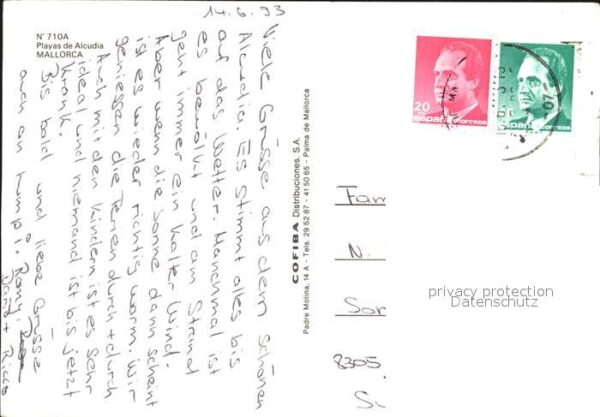 14.6.93
Nº 710A
Playas de Alcudia
MALLORCA
Viele Grüsse aus dem schönen
Alcudia. Es stimmt alles bis
auf das Wetter. Manchmal ist
es bewölkt und am Strand
geht immer ein kalter Wind.
Aber wenn die Sonne dann scheint
ist es wieder richtig warm. Wir
geniessen die Ferien durch + durch
Auch mit den Kindern ist es sehr
ideal und niemand ist bis jetzt
krank.
Bis bald und liebe Grüsse
auch an
David + Ricco
COFIBA Distribuciones, S.A.
Padre Molina, 14 A - Tels. 29 52 87 - 41 50 65 - Palma de Mallorca
20
españa
correos
españa
correos
Fam
N.
Sor
8305
privacy protection
Datenschutz